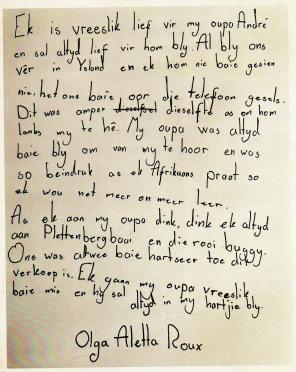 Ek is vreeslik lief vir my oupa André
en sal altyd lief vir hom bly. Al bly ons
vêr in Ysland en ek hom nie baie gesien
nie, het ons baie oor die telefoon gesels.
Dit was amper dieselfde as om hom
langs my te hê. My oupa was altyd
baie bly om van my te hoor en was
so beindruk as ek Afrikaans praat so
ek wou net meer en meer leer.
As ek aan my oupa dink, dink ek altyd
aan Plettenbergbaai en die rooi buggy.
Ons was altwee baie hartseer toe dit
verkoop is. Ek gaan my oupa vreeslik
baie mis en hy sal altyd in my hartjie bly.
Olga Aletta Roux